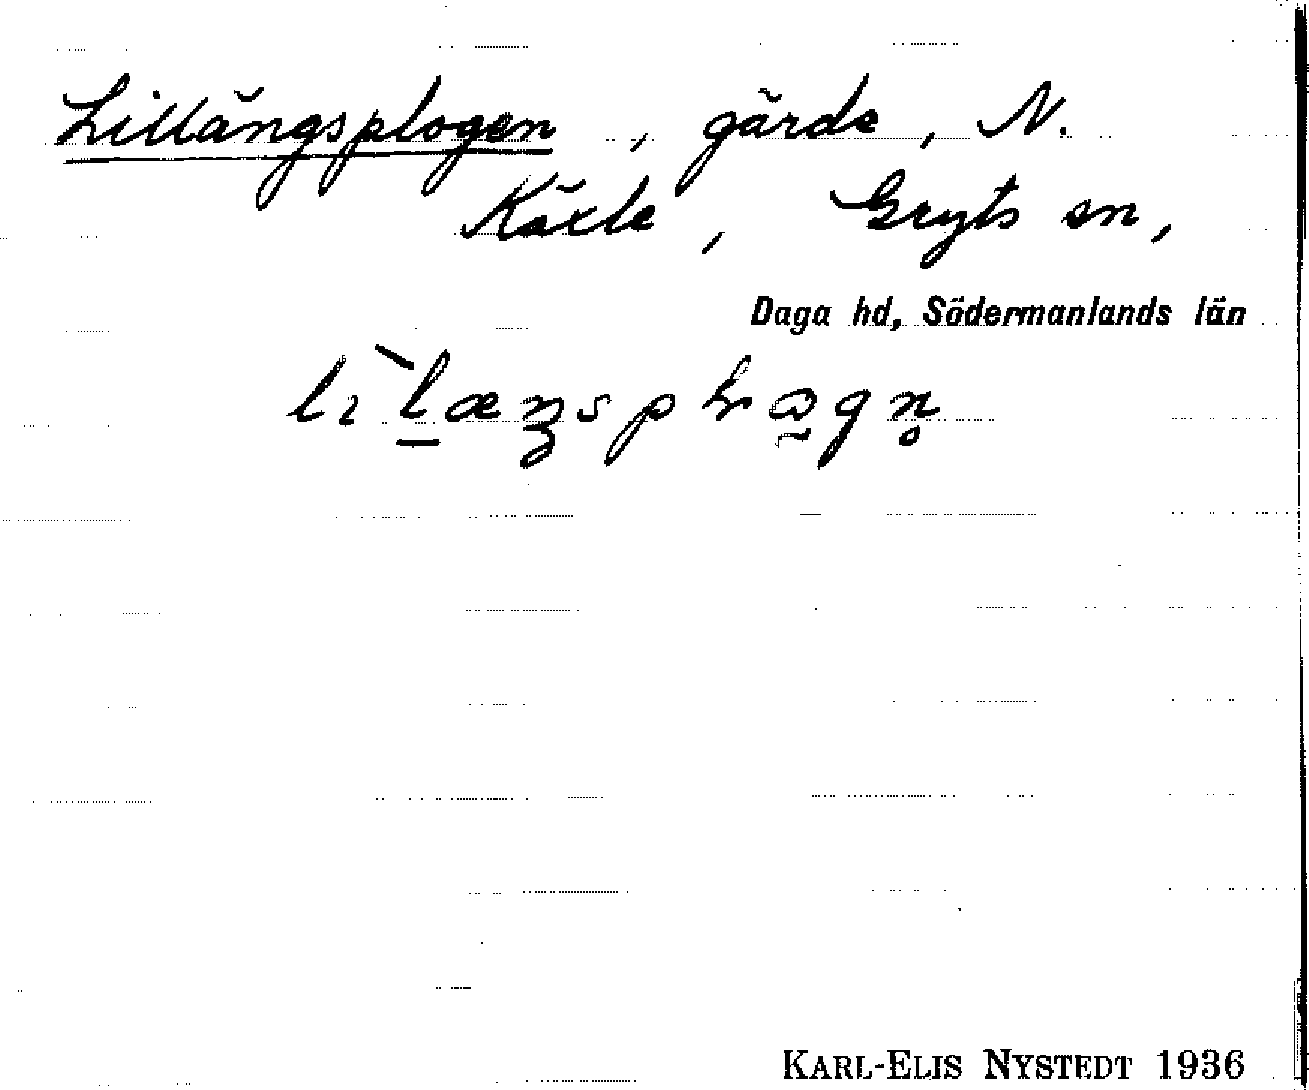 Lillängsplogen, gärde, N.
Käxle, Gryts sn,
Daga hd, Södermanlands län
KARL-ELIS NYSTEDT 1936